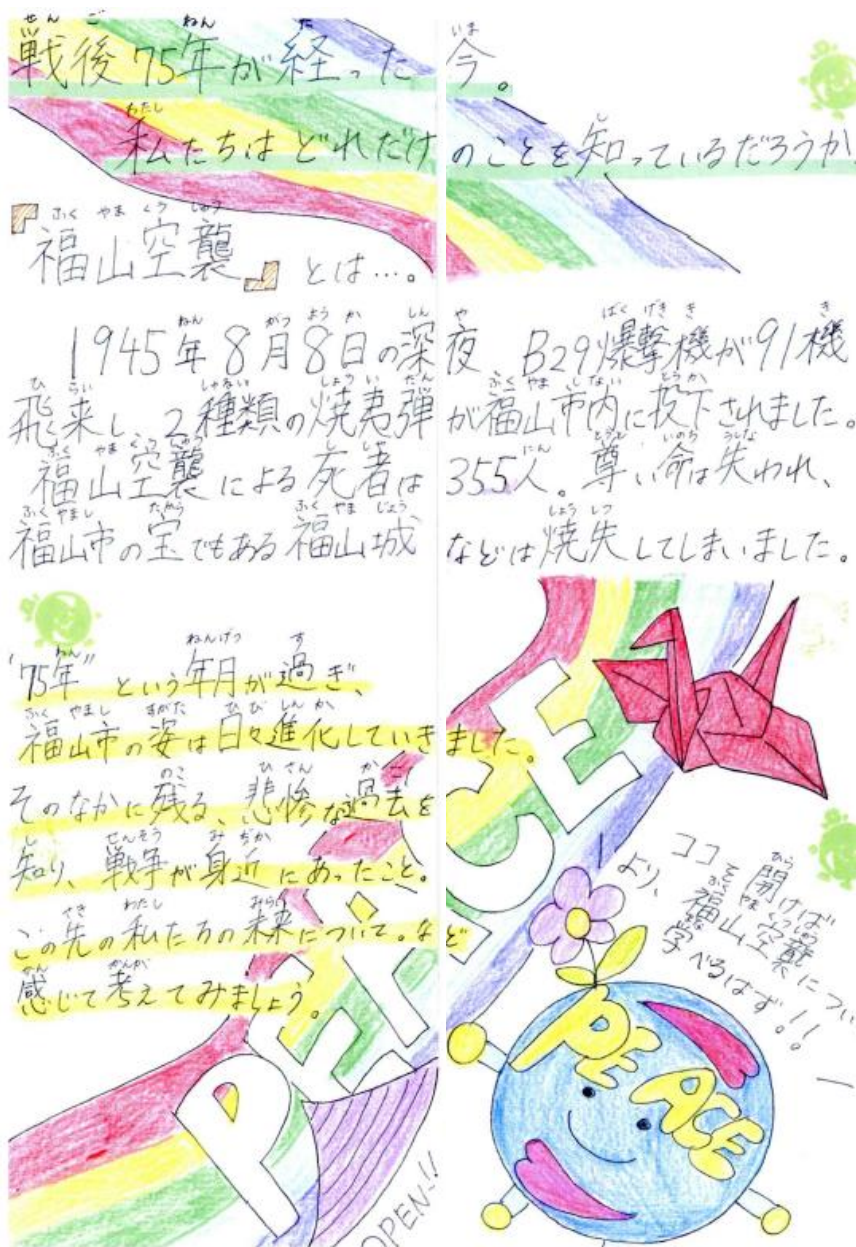 戦後75年が経った今。
私たちはどれだけのことを知っているだろうか
『福山空襲』とは…。
1945年8月8日の深夜 B29爆撃機が91機
飛来し、2種類の焼夷弾が福山市内に投下されました。
福山空襲による死者は355人。尊い命は失われ、
福山市の宝でもある福山城などは焼失してしまいました。
"75年"という年月が過ぎ、
福山市の姿は日々進化していきました。
そのなかに残る、悲惨な過去を
知り、戦争が身近にあったこと。
この先の私たちの未来について。など
感じて考えてみましょう。
PEACE
ココ開けば
より、福山空襲につい
学べるはず!!
PEACE
OPEN!!